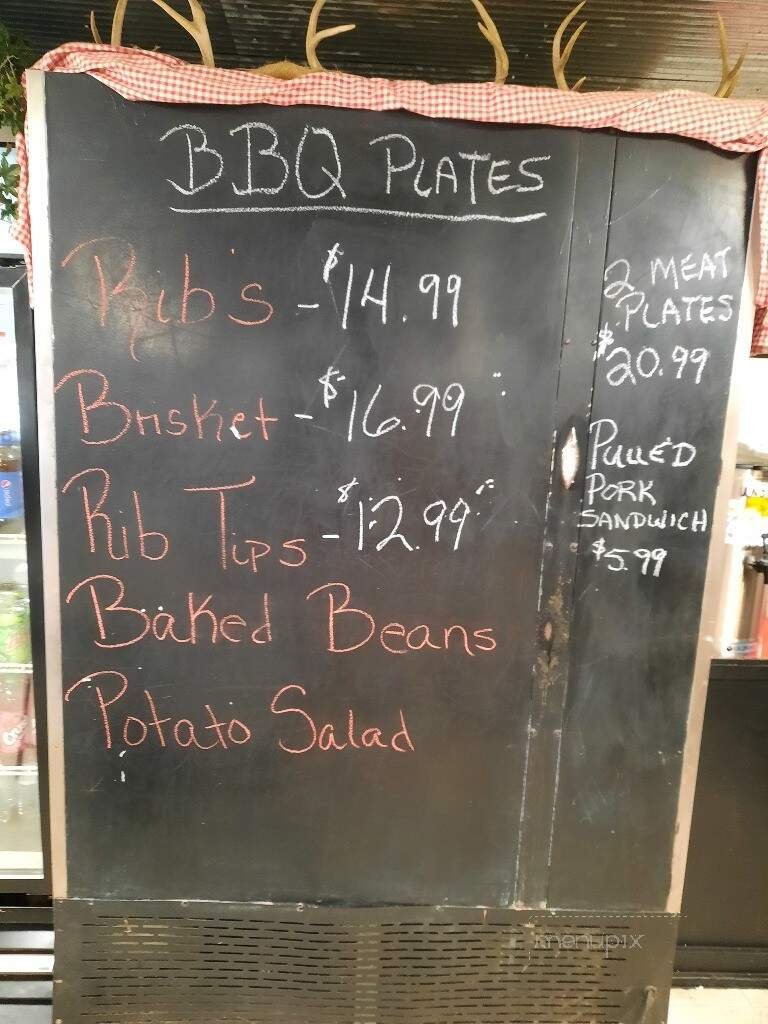 BBQ PLATES
Rib's - $14.99
Brisket - $16.99
Rib Tips - $12.99
Baked Beans
Potato Salad
2 MEAT
PLATES
$20.99
PULLED
PORK
SANDWICH
$5.99
menupix